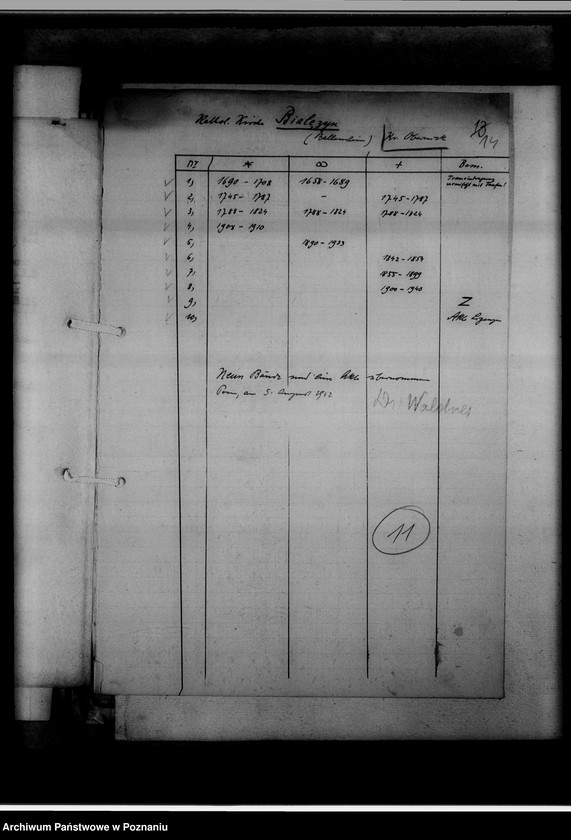 Kathol. Kirche Bialęzyn 13
(Ballenstein) Kr. Obornik 14
Nr * ∞ + Bem.
1) 1690 - 1708 1658 - 1689
2, 1745 - 1787 - 1745 - 1787
3, 1788 - 1824 1788 - 1824 1788 - 1824
4, 1908 - 1910
5, 1890 - 1933
6, 1842 - 1854
7, 1855 - 1899
8, 1900 - 1940
9, Z
10,
Neun Bände und ein übernommen
Posen, am 5. August 1942
Dr. 
11
Archiwum Państwowe w Poznaniu